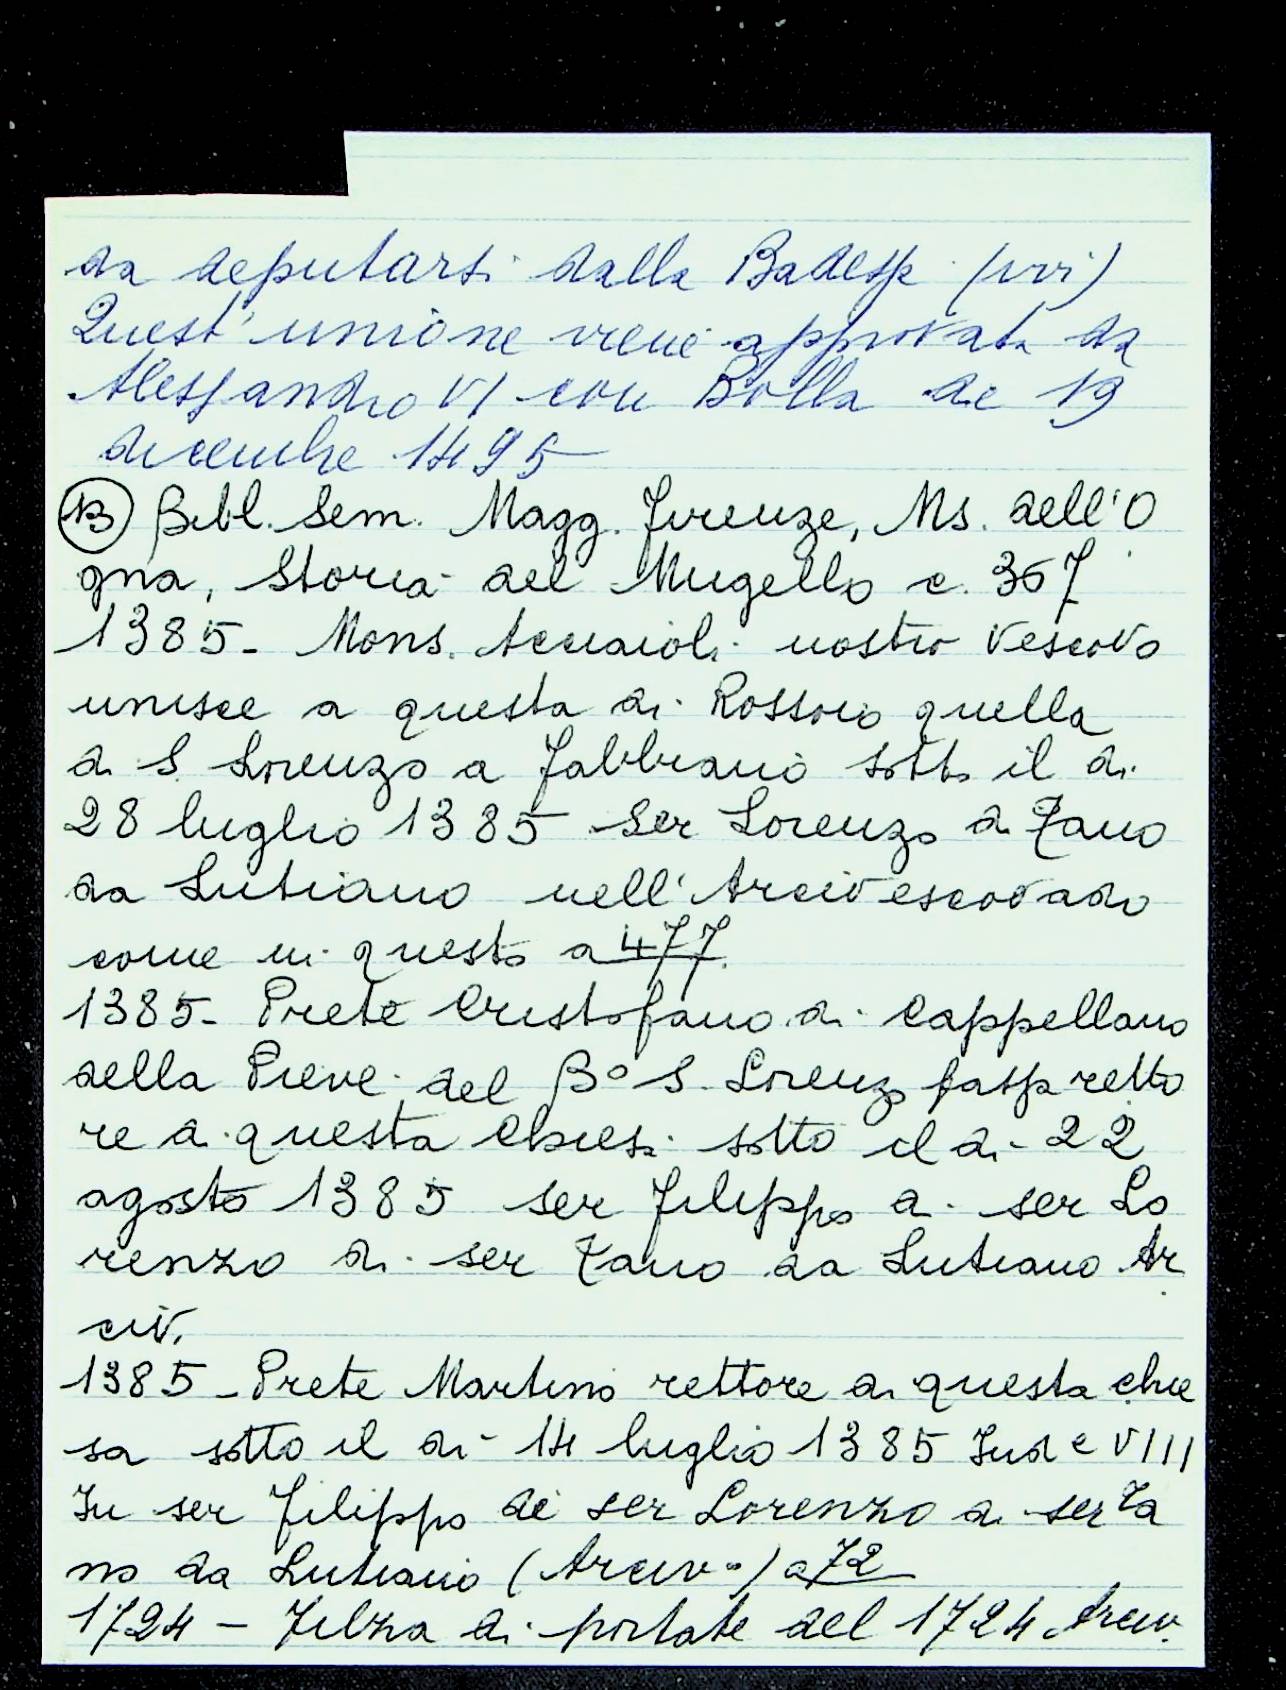 da deputarsi dalla Badessa (ivi)
Quest'unione viene approvata da
Alessandro VI con Bolla de 19
dicembre 1495
(B) Bibl. Sem. Magg. Firenze, Ms. dell'O
gna, Storia del Mugello c. 367
1385 - Mons. Acciaioli nostro Vescovo
unisce a questa di Rossoio quella
di S. Lorenzo a Fabbiano sotto il dì
28 luglio 1385 Ser Lorenzo di Tano
da Lutiano nell'Arcivescovado
come in questo a 477.
1385 - Prete Cristofano di Cappellano
della Pieve del B° S. Lorenzo fassi retto
re di questa Chiesa sotto il dì 22
agosto 1385 ser Filippo di ser Lo
renzo di ser Tano da Lutiano Ar
civ.
1385 - Prete Martino rettore di questa chie
sa sotto il dì 14 luglio 1385 Ind e VIII
In ser Filippo di ser Lorenzo di ser Ta
no da Lutiano (Arciv.o) a 72
1724 - Filza di portate del 1724 Arciv.